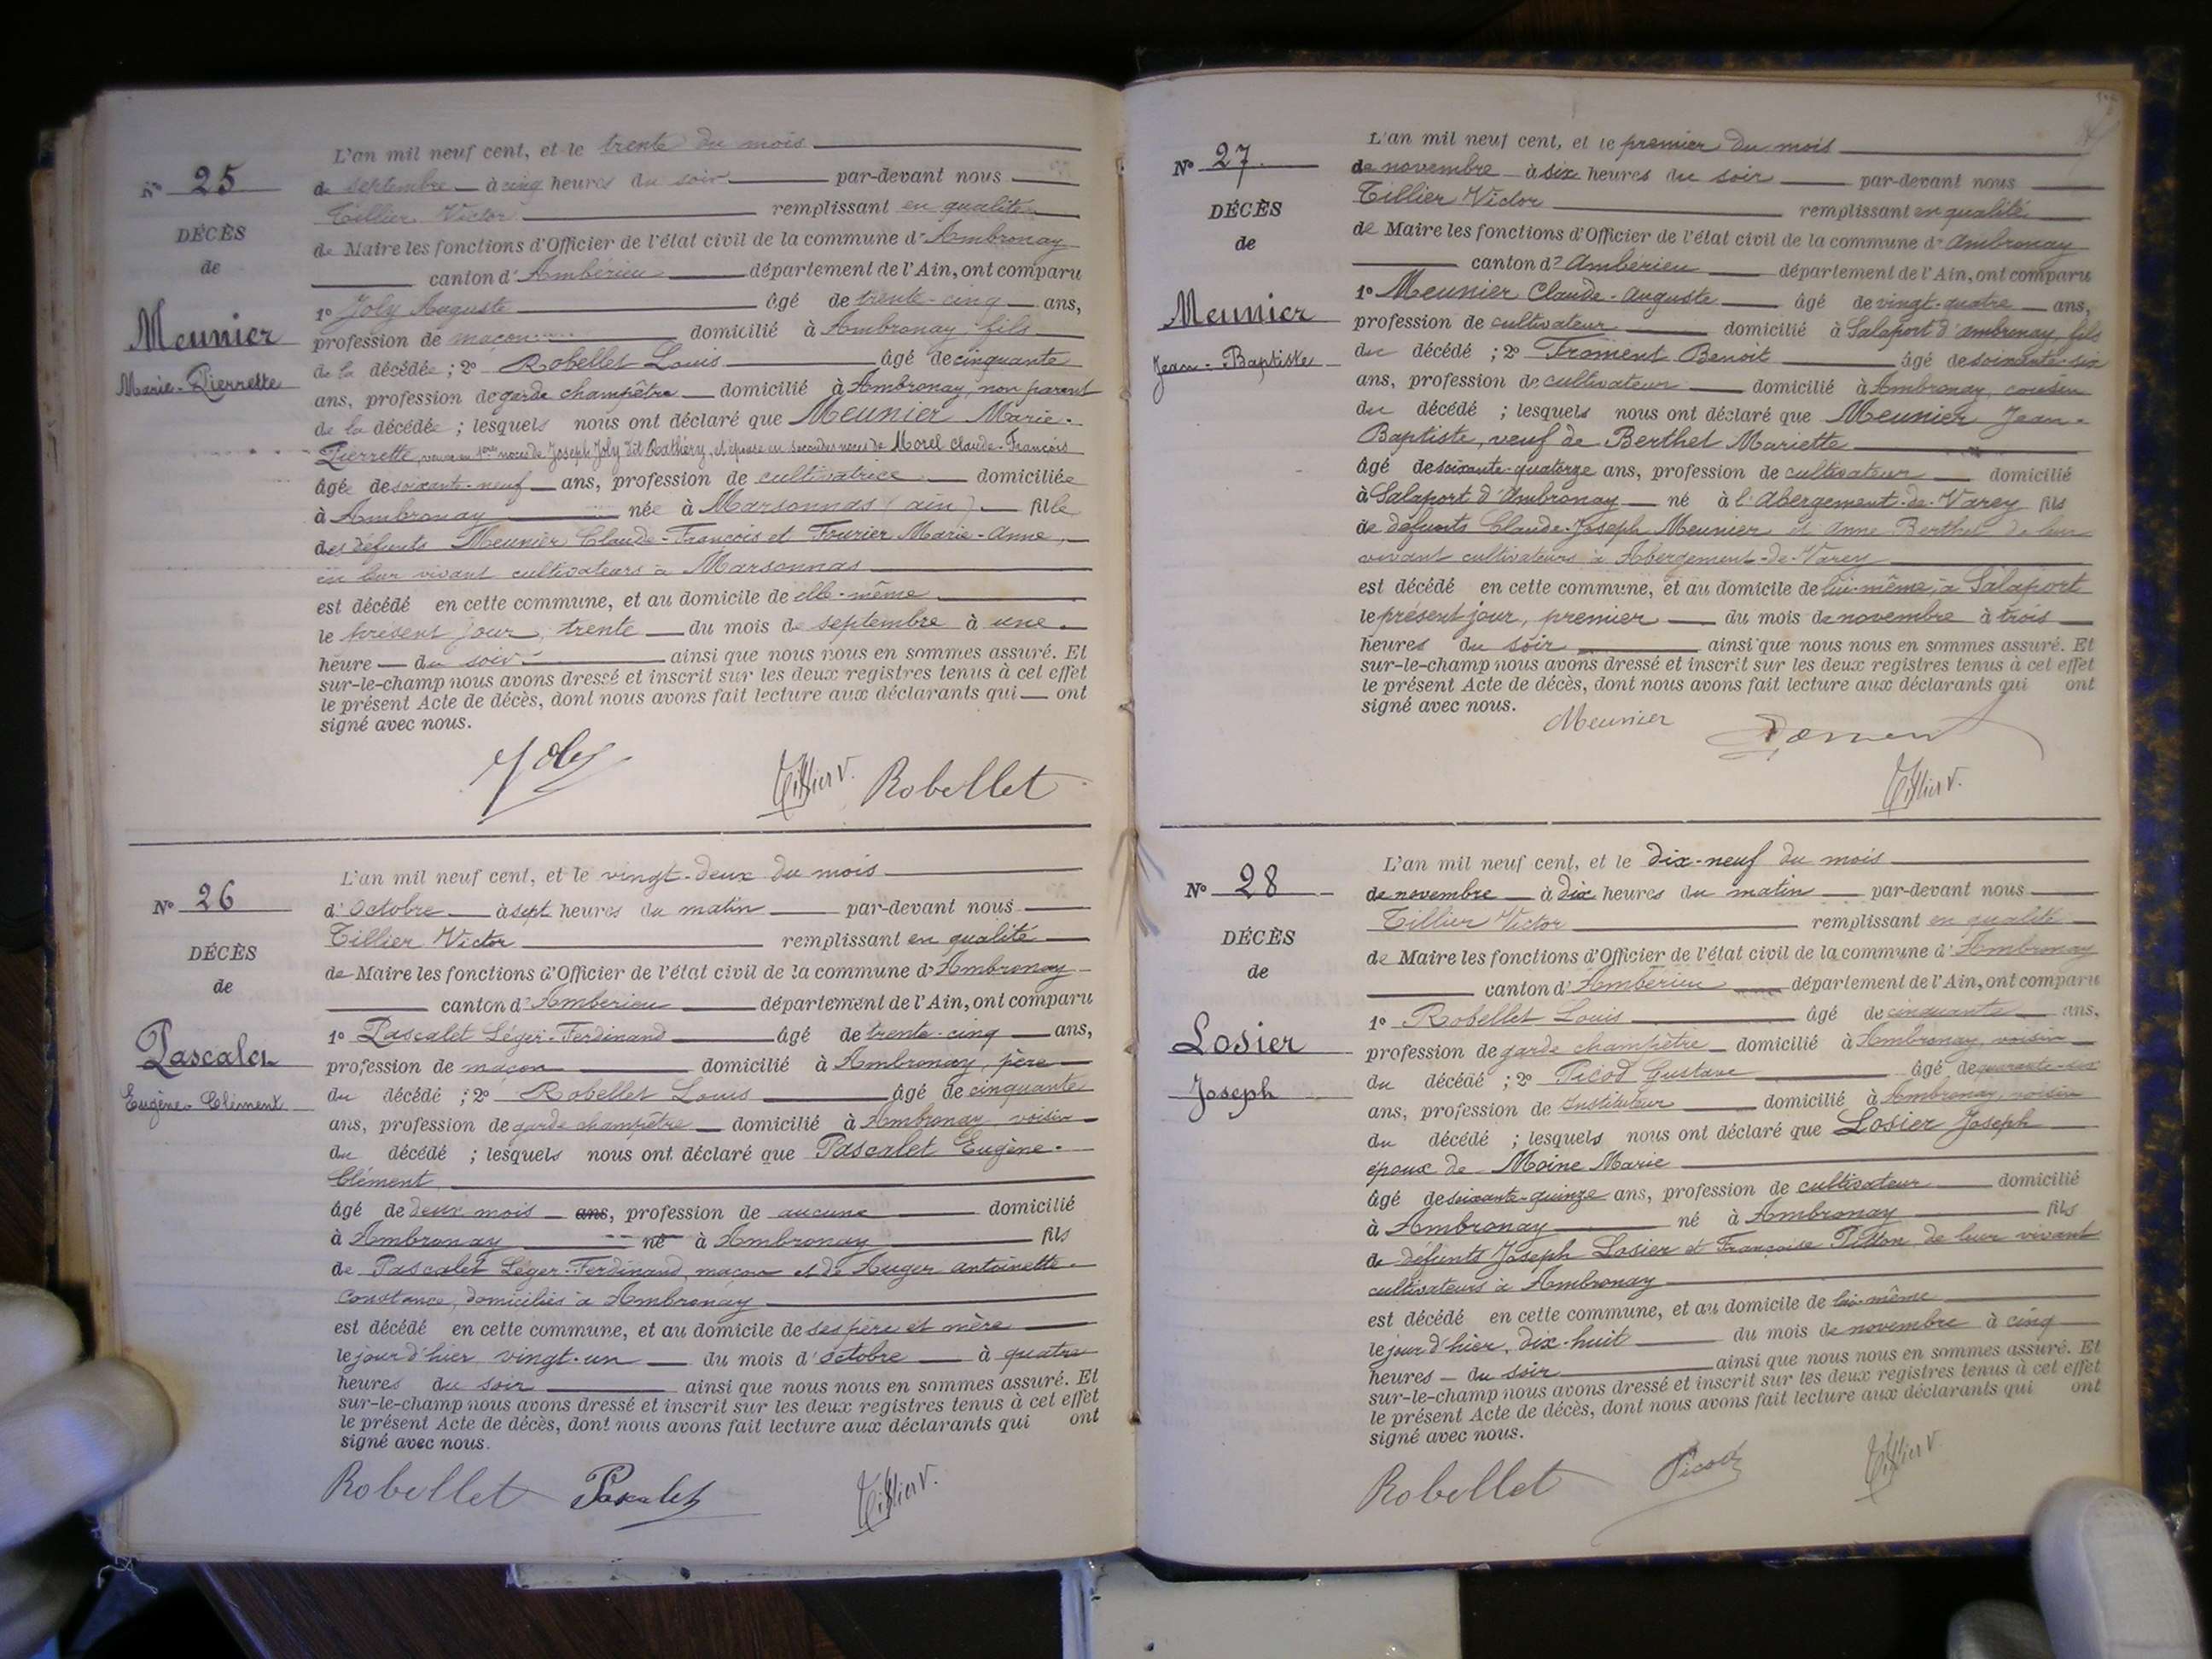 N° 25
DÉCÈS
de
Meunier
Marie-Pierrette
L'an mil neuf cent, et le trente du mois
de septembre à cinq heures du soir par-devant nous
Tillier Victor remplissant en qualité
de Maire les fonctions d'Officier de l'état civil de la commune d'Ambronay
canton d'Ambérieu département de l'Ain, ont comparu
1° Joly Auguste âgé de trente-cinq ans,
profession de maçon domicilié à Ambronay, fils
de la décédée ; 2° Robellet Louis âgé de cinquante
ans, profession de garde champêtre domicilié à Ambronay, non parent
de la décédée ; lesquels nous ont déclaré que Meunier Marie-
Pierrette, veuve en 1ères noces de Joseph Joly dit Rathéry, et épouse en secondes noces de Morel Claude-François
âgée de soixante-neuf ans, profession de cultivatrice domiciliée
à Ambronay née à Marsonnas (ain) fille
des défunts Meunier Claude-François et Fourier Marie-Anne,
en leur vivant cultivateurs à Marsonnas
est décédé en cette commune, et au domicile de elle-même
le présent jour, trente du mois de septembre à une
heure du soir ainsi que nous nous en sommes assuré. Et
sur-le-champ nous avons dressé et inscrit sur les deux registres tenus à cet effet
le présent Acte de décès, dont nous avons fait lecture aux déclarants qui ont
signé avec nous.
Joly Tillier V. Robellet
N° 26
DÉCÈS
de
Pascalet
Eugène-Clément
L'an mil neuf cent, et le vingt-deux du mois
d'Octobre à sept heures du matin par-devant nous
Tillier Victor remplissant en qualité
de Maire les fonctions d'Officier de l'état civil de la commune d'Ambronay
canton d'Ambérieu département de l'Ain, ont comparu
1° Pascalet Léger-Ferdinand âgé de trente-cinq ans,
profession de maçon domicilié à Ambronay, père
du décédé ; 2° Robellet Louis âgé de cinquante
ans, profession de garde champêtre domicilié à Ambronay, voisin
du décédé ; lesquels nous ont déclaré que Pascalet Eugène-
Clément
âgé de deux mois ans, profession de aucune domicilié
à Ambronay né à Ambronay fils
de Pascalet Léger-Ferdinand, maçon et de Auger Antoinette-
Constance, domiciliés à Ambronay
est décédé en cette commune, et au domicile de ses père et mère
le jour d'hier vingt-un du mois d'octobre à quatre
heures du soir ainsi que nous nous en sommes assuré. Et
sur-le-champ nous avons dressé et inscrit sur les deux registres tenus à cet effet
le présent Acte de décès, dont nous avons fait lecture aux déclarants qui ont
signé avec nous.
Robellet Pascalet Tillier V.
N° 27
DÉCÈS
de
Meunier
Jean-Baptiste
L'an mil neuf cent, et le premier du mois
de novembre à six heures du soir par-devant nous
Tillier Victor remplissant en qualité
de Maire les fonctions d'Officier de l'état civil de la commune d'Ambronay
canton d'Ambérieu département de l'Ain, ont comparu
1° Meunier Claude-Auguste âgé de vingt-quatre ans,
profession de cultivateur domicilié à Salaport d'Ambronay, fils
du décédé ; 2° Froment Benoit âgé de soixante-six
ans, profession de cultivateur domicilié à Ambronay, cousin
du décédé ; lesquels nous ont déclaré que Meunier Jean-
Baptiste, veuf de Berthet Mariette
âgé de soixante-quatorze ans, profession de cultivateur domicilié
à Salaport d'Ambronay né à l'Abergement-de-Varey fils
de défunts Claude-Joseph Meunier et Anne Berthet de leur
vivant cultivateurs à Abergement-de-Varey
est décédé en cette commune, et au domicile de lui-même, à Salaport
le présent jour, premier du mois de novembre à trois
heures du soir ainsi que nous nous en sommes assuré. Et
sur-le-champ nous avons dressé et inscrit sur les deux registres tenus à cet effet
le présent Acte de décès, dont nous avons fait lecture aux déclarants qui ont
signé avec nous.
Meunier Froment
Tillier V.
N° 28
DÉCÈS
de
Losier
Joseph
L'an mil neuf cent, et le dix-neuf du mois
de novembre à dix heures du matin par-devant nous
Tillier Victor remplissant en qualité
de Maire les fonctions d'Officier de l'état civil de la commune d'Ambronay
canton d'Ambérieu département de l'Ain, ont comparu
1° Robellet Louis âgé de cinquante ans,
profession de garde champêtre domicilié à Ambronay, voisin
du décédé ; 2° Picod Gustave âgé de quarante-six
ans, profession de Instituteur domicilié à Ambronay, voisin
du décédé ; lesquels nous ont déclaré que Losier Joseph
époux de Moine Marie
âgé de soixante-quinze ans, profession de cultivateur domicilié
à Ambronay né à Ambronay fils
de défunts Joseph Losier et Françoise de leur vivant
cultivateurs à Ambronay
est décédé en cette commune, et au domicile de lui-même
le jour d'hier, dix-huit du mois de novembre à cinq
heures du soir ainsi que nous nous en sommes assuré. Et
sur-le-champ nous avons dressé et inscrit sur les deux registres tenus à cet effet
le présent Acte de décès, dont nous avons fait lecture aux déclarants qui ont
signé avec nous.
Robellet Picod Tillier V.